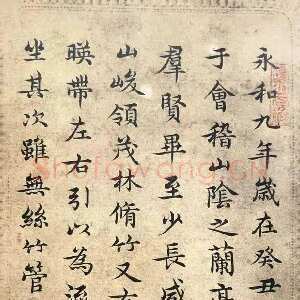 永和九年歲在癸丑
于會稽山陰之蘭亭
羣賢畢至少長咸
山峻領茂林脩竹又
暎帶左右引以為流
坐其次雖無絲竹管